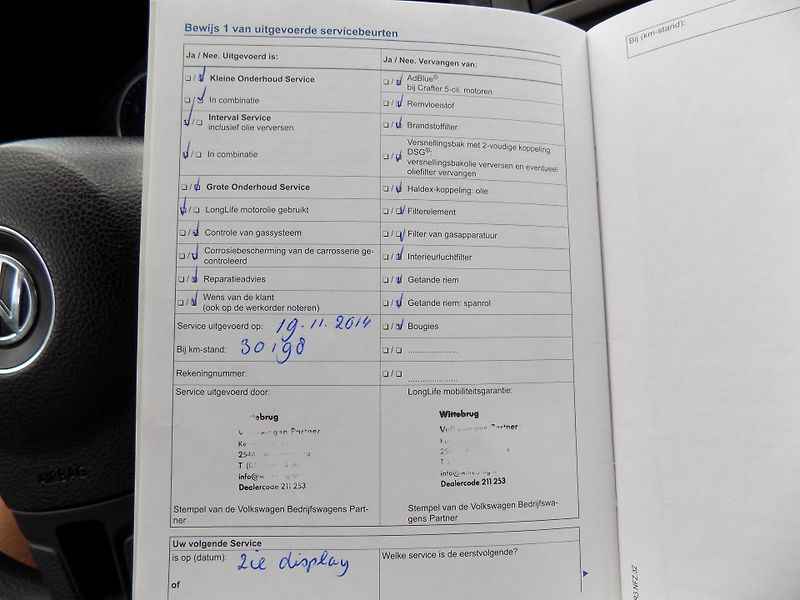 Bewijs 1 van uitgevoerde servicebeurten
Ja / Nee. Uitgevoerd is:
Kleine Onderhoud Service
In combinatie
Interval Service
inclusief olie verversen
In combinatie
Grote Onderhoud Service
LongLife motorolie gebruikt
Controle van gassysteem
Corrosiebescherming van de carrosserie ge-
controleerd
Reparatieadvies
Wens van de klant
(ook op de werkorder noteren)
Service uitgevoerd op: 19.11.2014
Bij km-stand: 30198
Rekeningnummer:
Service uitgevoerd door:
Partner
2544
info@
Dealercode 211 253
Stempel van de Volkswagen Bedrijfswagens Part-
ner
Ja / Nee. Vervangen van:
AdBlue®
bij Crafter 5-cil. motoren
Remvloeistof
Brandstoffilter
Versnellingsbak met 2-voudige koppeling
DSG®:
versnellingsbakolie verversen en eventueel
oliefilter vervangen
Haldex-koppeling: olie
Filterelement
Filter van gasapparatuur
Interieurluchtfilter
Getande riem
Getande riem: spanrol
Bougies
LongLife mobiliteitsgarantie:
Wittebrug
Partner
Dealercode 211 253
Stempel van de Volkswagen Bedrijfswa-
gens Partner
Uw volgende Service
is op (datum): zie display
of
Welke service is de eerstvolgende?
Bij (km-stand):
AIRBAG